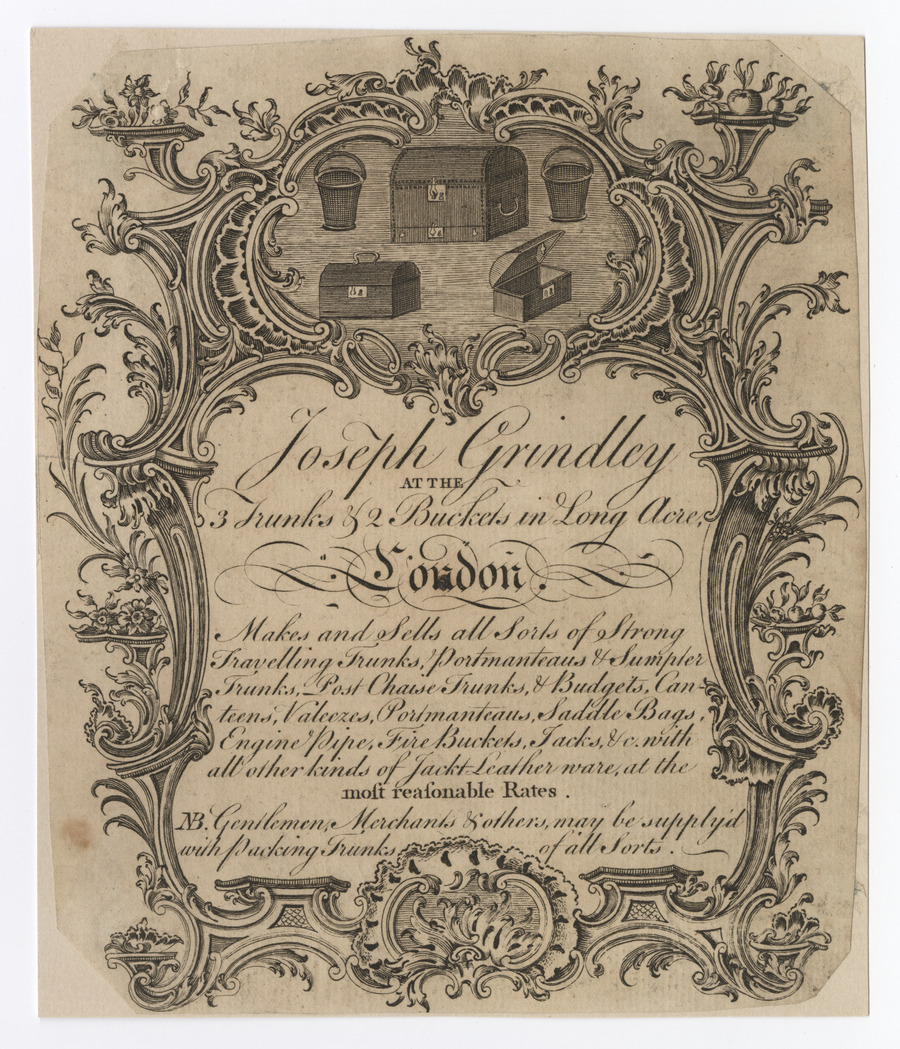 Joseph Grindley
AT THE
3 Trunks & 2 Buckets in Long Acre,
London.
Makes and Sells all Sorts of Strong
Travelling Trunks, Portmanteaus & Sumpter
Trunks, Post Chaise Trunks, & Budgets, Can-
teens, Valeezes, Portmanteaus, Saddle Bags,
Engine Pipe, Fire Buckets, Jacks, &c. with
all other kinds of Jackt Leather ware, at the
moſt reaſonable Rates .
NB. Gentlemen, Merchants & others, may be supply'd
with Packing Trunks of all Sorts.